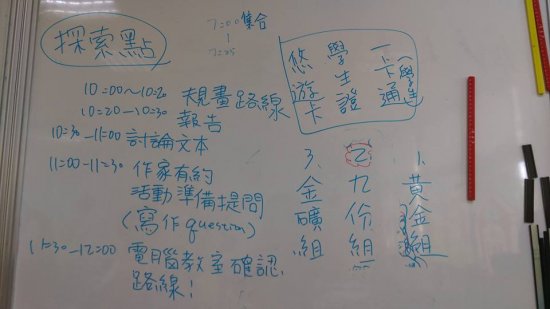 探索點
7:00集合
|
7:25
悠遊卡
學生證
一卡通(學生)
10:00~10:20 規畫路線
10:20-10:30 報告
10:30-11:00 討論文本
11:00-11:30 作家有約
活動準備提問
(寫作question)
11:30-12:00 電腦教室確認
路線!
3、金礦組
2九份組
1、黃金組